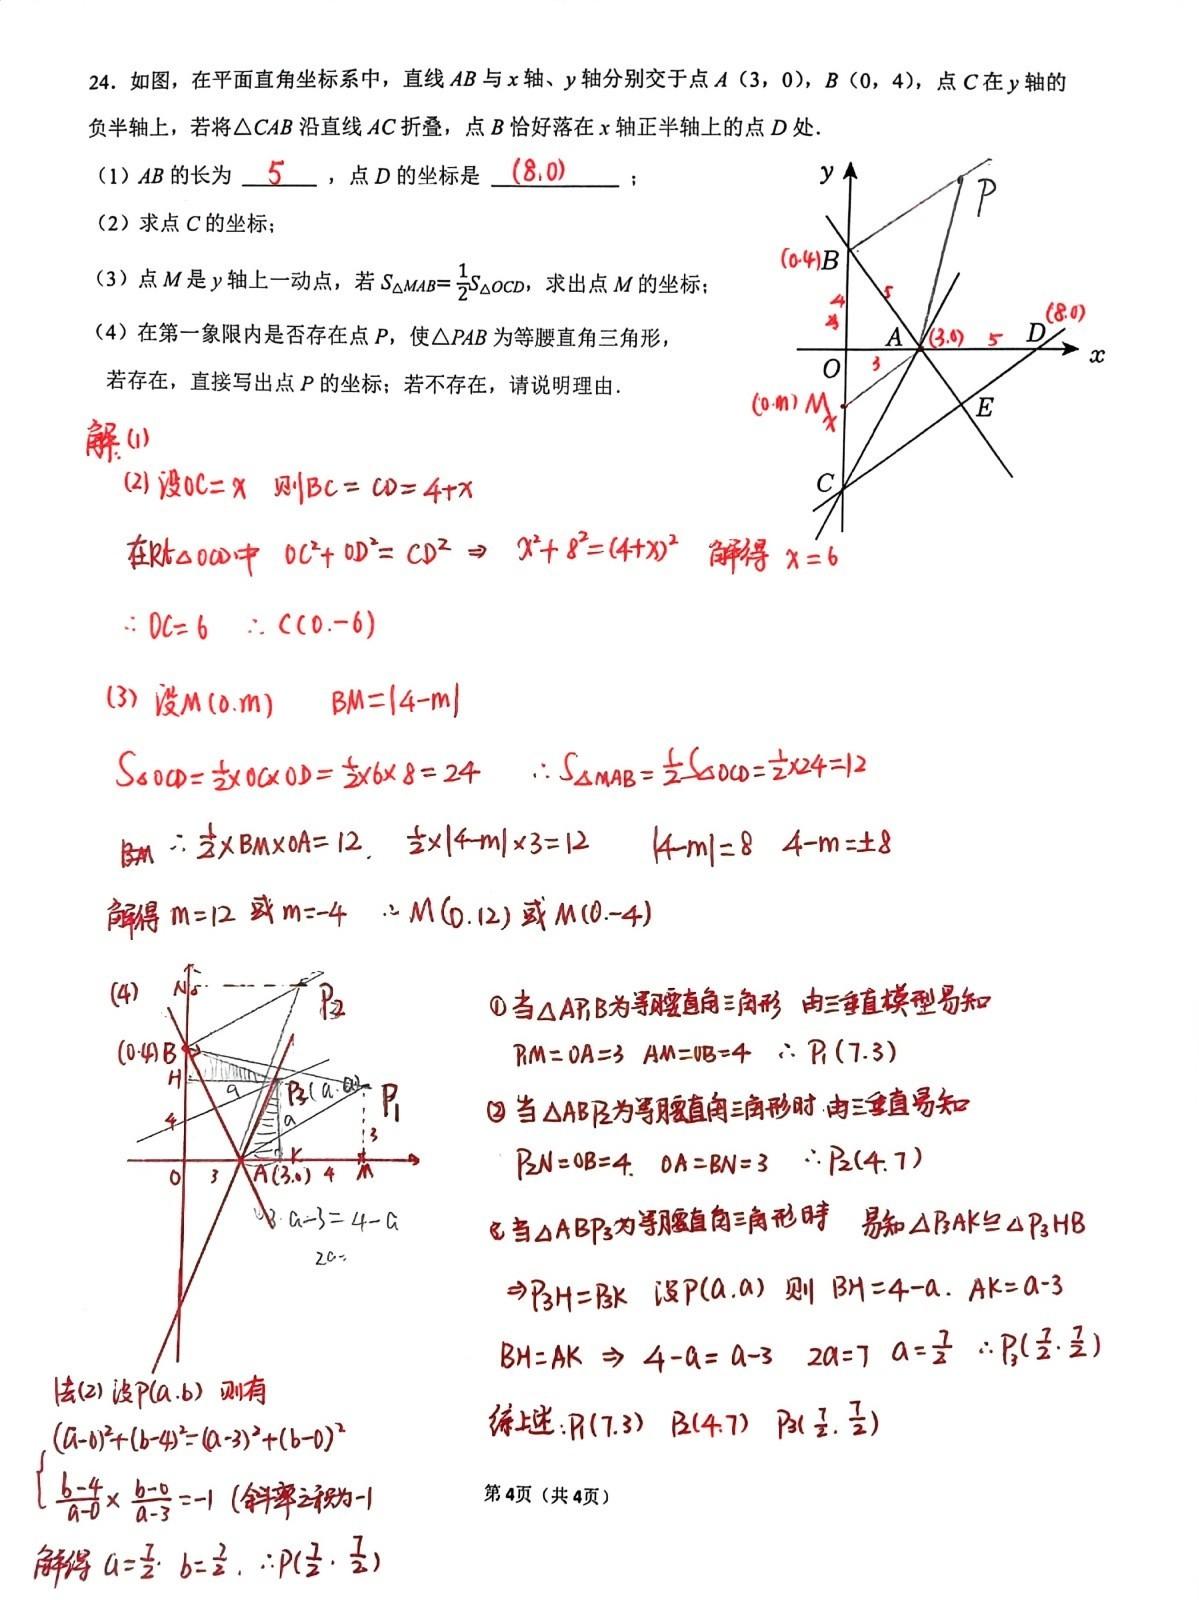 24．如图，在平面直角坐标系中，直线 AB 与 x 轴、y 轴分别交于点 A（3，0），B（0，4），点 C 在 y 轴的
负半轴上，若将△CAB 沿直线 AC 折叠，点 B 恰好落在 x 轴正半轴上的点 D 处．
（1）AB 的长为 5 ，点 D 的坐标是 (8.0) ；
（2）求点 C 的坐标；
（3）点 M 是 y 轴上一动点，若 S△MAB= 1/2 S△OCD，求出点 M 的坐标；
（4）在第一象限内是否存在点 P，使△PAB 为等腰直角三角形，
若存在，直接写出点 P 的坐标；若不存在，请说明理由．
y
P
(0.4) B
5
4
A (3.0) 5 D (8.0)
x
O 3
(0.m) M
x
E
C
解:(1)
(2) 设OC=x 则BC=CD=4+x
在Rt△OCD中 OC²+OD²=CD² ⇒ x²+8²=(4+x)² 解得 x=6
∴OC=6 ∴C(0.-6)
(3) 设M(0.m) BM=|4-m|
S△OCD=1/2×OC×OD=1/2×6×8=24 ∴S△MAB=1/2S△OCD=1/2×24=12
∴1/2×BM×OA=12. 1/2×|4-m|×3=12 |4-m|=8 4-m=±8
解得 m=12 或 m=-4 ∴M(0.12) 或 M(0.-4)
(4) N P2
(0.4) B
H a P3(a.a) P1
4 a 3
O 3 A(3.0) K 4 M
a-3=4-a
2a=
①当△AP1B为等腰直角三角形 由三垂直模型易知
P1M=OA=3 AM=OB=4 ∴P1(7.3)
②当△ABP2为等腰直角三角形时.由三垂直易知
P2N=OB=4. OA=BN=3 ∴P2(4.7)
当△ABP3为等腰直角三角形时 易知△P3AK≌△P3HB
⇒P3H=P3K 设P(a.a) 则 BH=4-a. AK=a-3
BH=AK ⇒ 4-a=a-3 2a=7 a=7/2 ∴P3(7/2.7/2)
综上述:P1(7.3) P2(4.7) P3(7/2.7/2)
法(2) 设P(a.b) 则有
(a-0)²+(b-4)²=(a-3)²+(b-0)²
(b-4)/(a-0)×(b-0)/(a-3)=-1 (斜率之积为-1
解得 a=7/2. b=7/2. ∴P(7/2.7/2)
第 4页（共 4页）